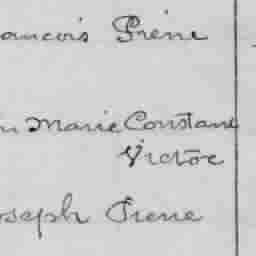 ancois Prene
n Marie Constant
Victor
oseph Prene